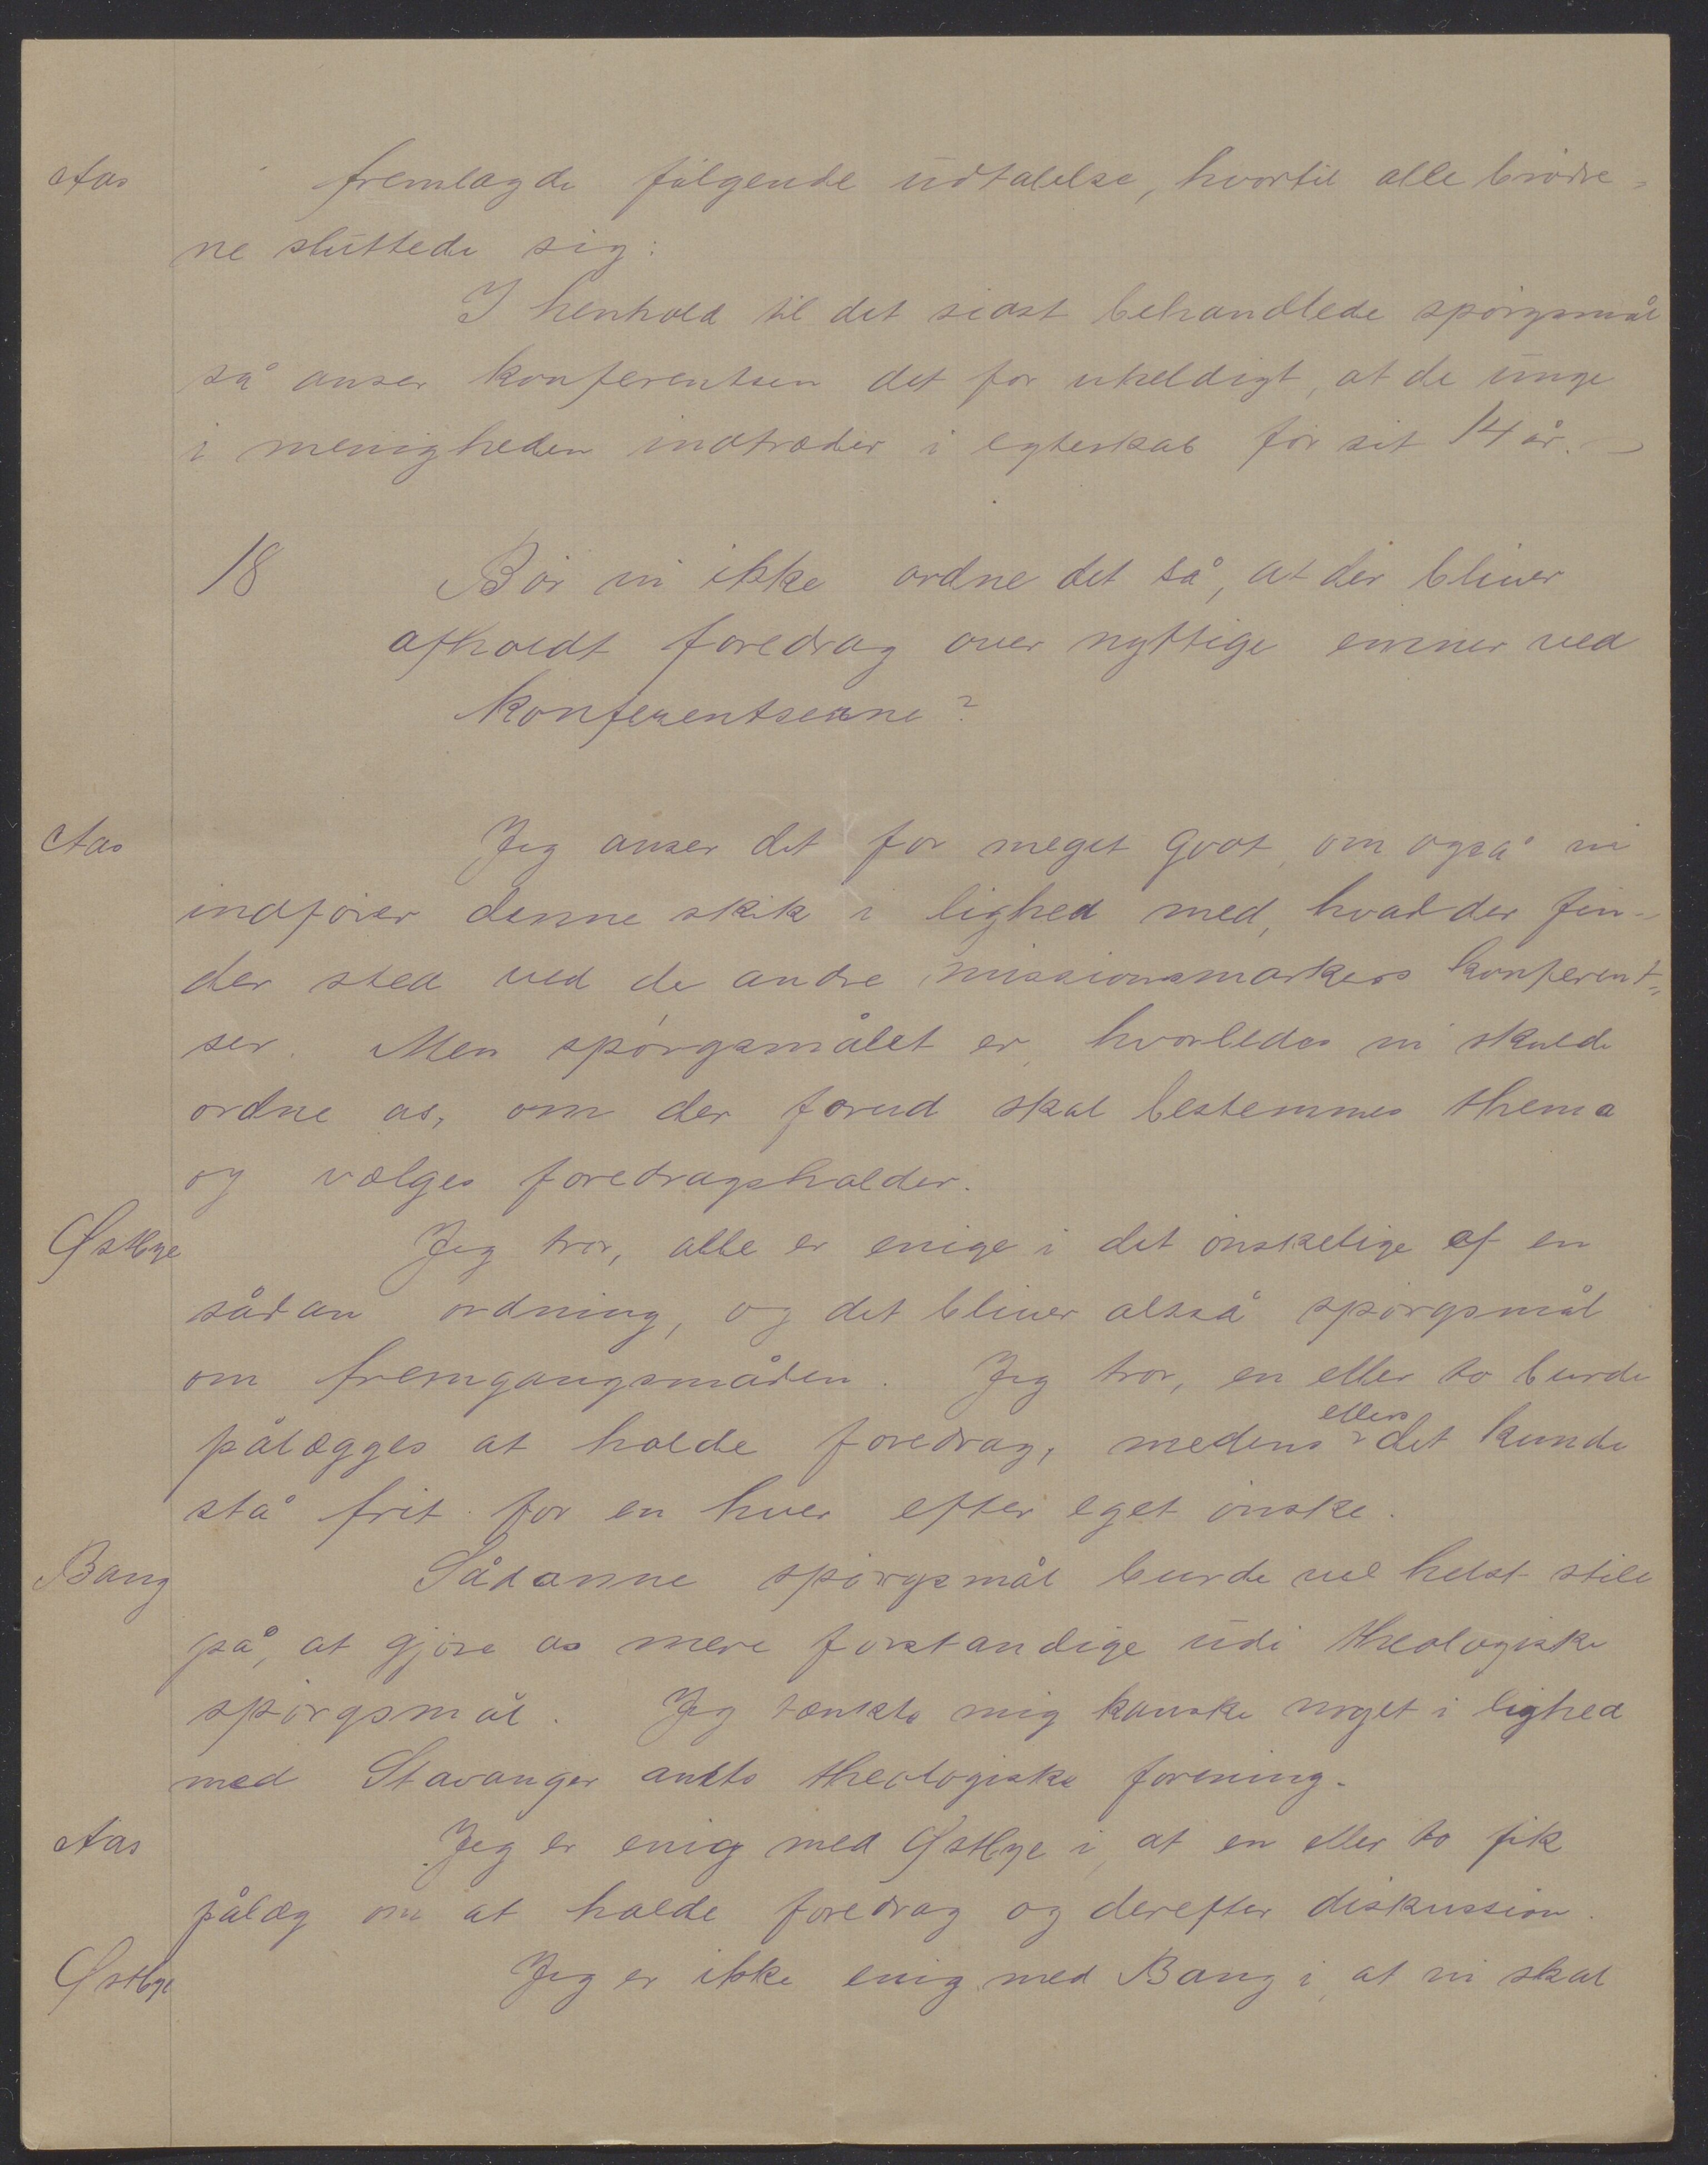 Aas fremlagde følgende udtalelse, hvortil alle brødre=
ne sluttede sig:
I henhold til det sidst behandlede spørgsmål
så anser konferentsen det for uheldigt, at de unge
i menigheden indtræder i egteskab før sit 14 år. –
18 Bør vi ikke ordne det så, at der bliver
afholdt foredrag over nyttige emner ved
konferentserne?
Aas Jeg anser det for meget godt, om også vi
indfører denne skik i lighed med, hvad der fin=
der sted ved de andre missionsmarkers konferent=
ser. Men spørgsmålet er, hvorledes vi skulde
ordne os, om der forud skal bestemmes thema
og vælges foredragsholder.
Østbye Jeg tror, alle er enige i det ønskelige af en
sådan ordning, og det bliver altså spørgsmål
om fremgangsmåden. Jeg tror, en eller to burde
pålægges at holde foredrag, medens ellers det kunde
stå frit for en hver efter eget ønske.
Bang Sådanne spørgsmål burde vel helst stile
på, at gjøre os mere forstandige udi theologiske
spørgsmål. Jeg tænkte mig kanske noget i lighed
med Stavanger amts theologiske forening.
Aas Jeg er enig med Østbye i, at en eller to fik
pålæg om at holde foredrag og derefter diskussion.
Østbye Jeg er ikke enig med Bang i, at vi skal